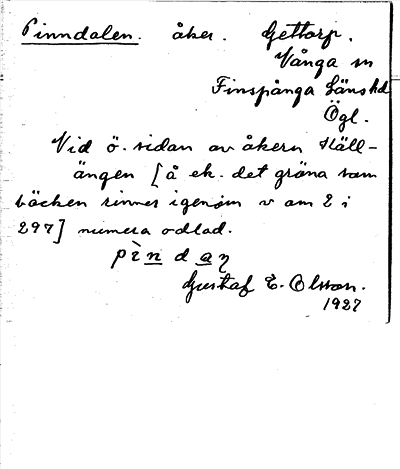 Pinndalen. åker. Gettorp.
Vånga sn
Finspånga Länshd
Ögl.
Vid ö. sidan av åkern Käll-
ängen [å ek. det gröna som
bäcken rinner igenom v om 2 i
297] numera odlad.
pìn daƞ
Gustaf E. Olsson.
1927